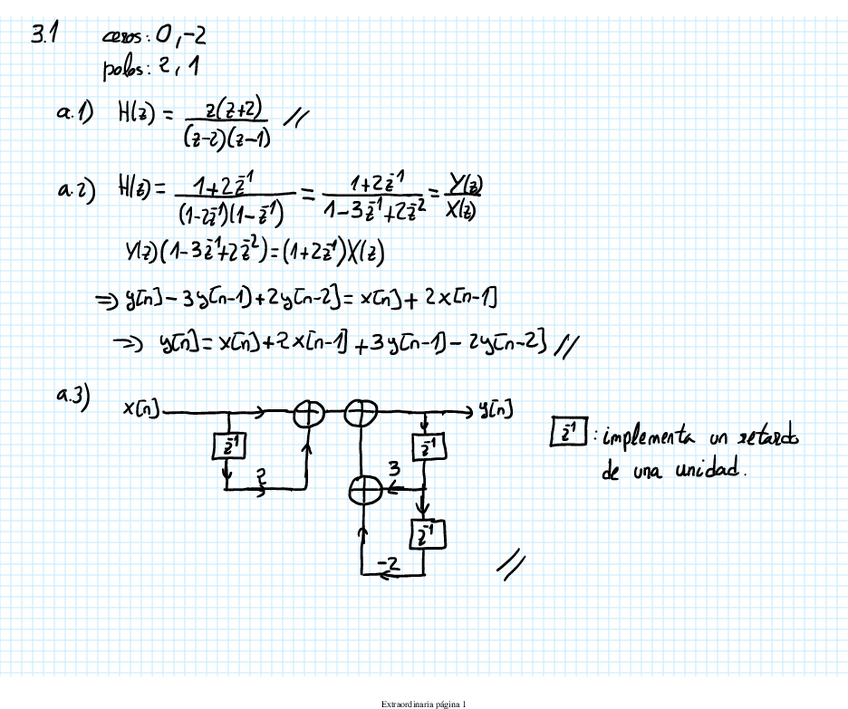 3.1 ceros: 0, -2
polos: 2, 1
a.1) H(z) = z(z+2) / (z-2)(z-1) //
a.2) H(z) = 1+2z⁻¹ / (1-2z⁻¹)(1-z⁻¹) = 1+2z⁻¹ / 1-3z⁻¹+2z⁻² = Y(z) / X(z)
Y(z)(1-3z⁻¹+2z⁻²)=(1+2z⁻¹)X(z)
⇒ y[n]-3y[n-1]+2y[n-2]= x[n]+2x[n-1]
⇒ y[n]= x[n]+2x[n-1]+3y[n-1]-2y[n-2] //
a.3) x[n] y[n]
z⁻¹ z⁻¹ z⁻¹ : implementa un retardo
2 3 de una unidad.
z⁻¹
-2 //
Extraordinaria página 1